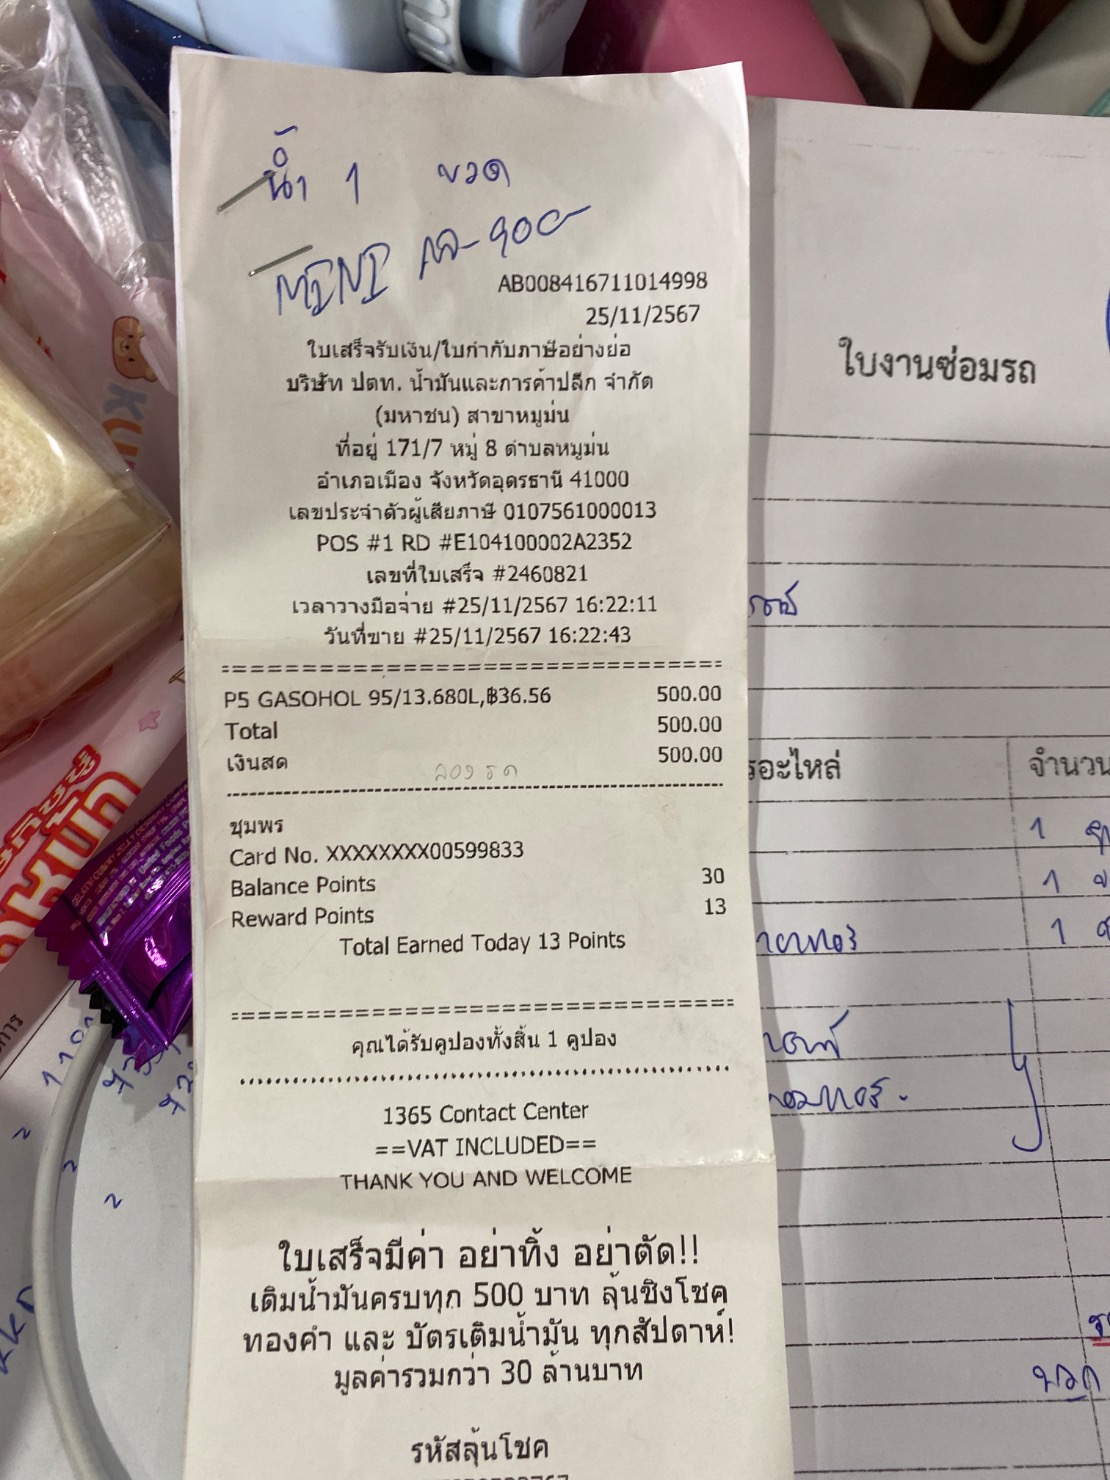 น้ำ 1 ขวด
MINI
AB008416711014998
25/11/2567
ใบเสร็จรับเงิน/ใบกำกับภาษีอย่างย่อ
บริษัท ปตท. น้ำมันและการค้าปลีก จำกัด
(มหาชน) สาขาหมูม่น
ที่อยู่ 171/7 หมู่ 8 ตำบลหมูม่น
อำเภอเมือง จังหวัดอุดรธานี 41000
เลขประจำตัวผู้เสียภาษี 0107561000013
POS #1 RD #E104100002A2352
เลขที่ใบเสร็จ #2460821
เวลาวางมือจ่าย #25/11/2567 16:22:11
วันที่ขาย #25/11/2567 16:22:43
P5 GASOHOL 95/13.680L,฿36.56 500.00
Total 500.00
เงินสด 500.00
ลองรถ
ชุมพร
Card No. XXXXXXXX00599833
Balance Points 30
Reward Points 13
Total Earned Today 13 Points
คุณได้รับคูปองทั้งสิ้น 1 คูปอง
1365 Contact Center
==VAT INCLUDED==
THANK YOU AND WELCOME
ใบเสร็จมีค่า อย่าทิ้ง อย่าตัด!!
เติมน้ำมันครบทุก 500 บาท ลุ้นชิงโชค
ทองคำ และ บัตรเติมน้ำมัน ทุกสัปดาห์!
มูลค่ารวมกว่า 30 ล้านบาท
รหัสลุ้นโชค
ใบงานซ่อมรถ
อะไหล่ จำนวน
1
1
1